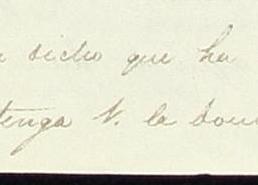 dicho que ha
tenga V. la